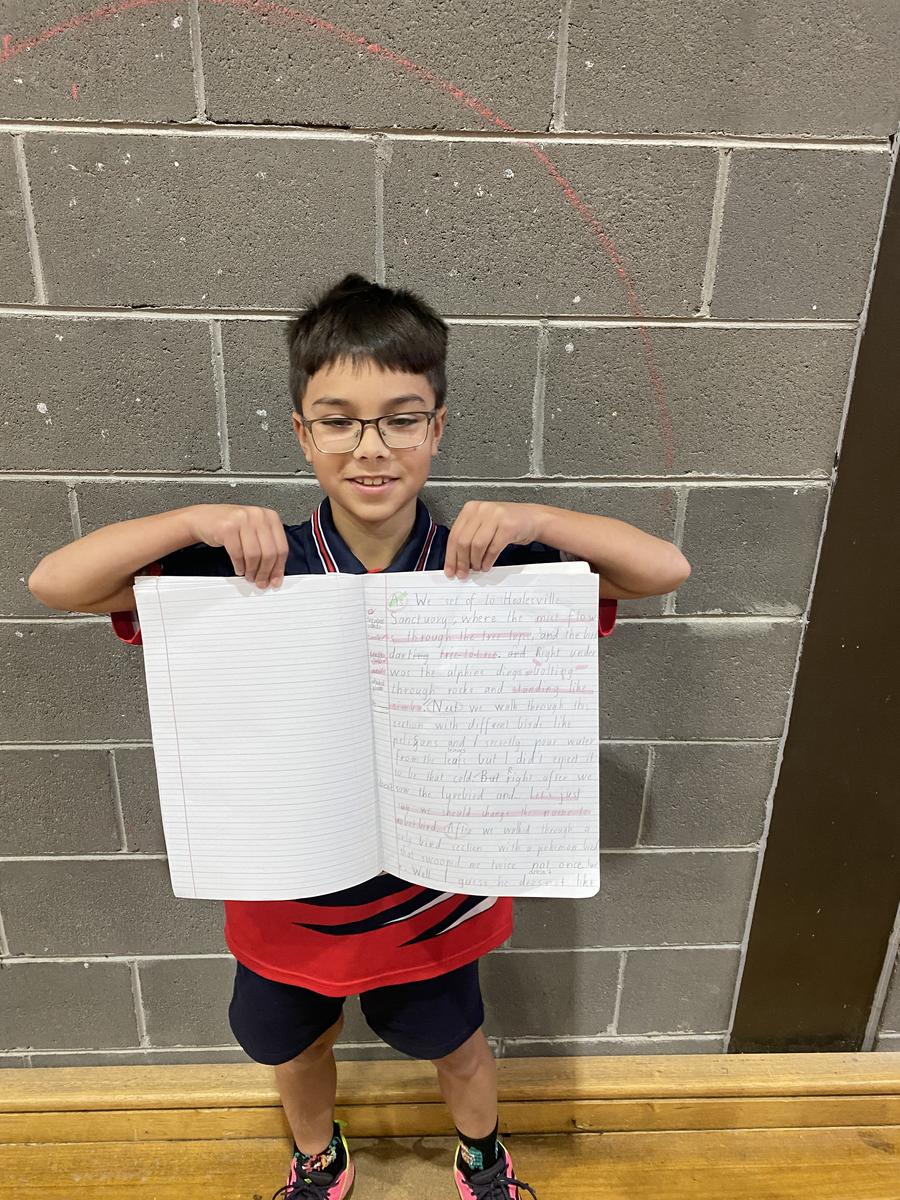 As We set of to Healesville
Sanctuary, where the mist flow
s through the tree tops, and the birds
darting tree-to-tree. and Right under
was the alphine dingo volting
through rocks and standing like
Next we walk through this
section with different birds like
peligans and I secretly pour water
leaves
from the leafs but I did't expect it
to be that cold. But right after we
saw the lyrebird and Let's just
say we should change the name to
After we walked through a
bird section with a pokemon bird
that swooped me twice not once
doesn't
Well I guess he doesnst like